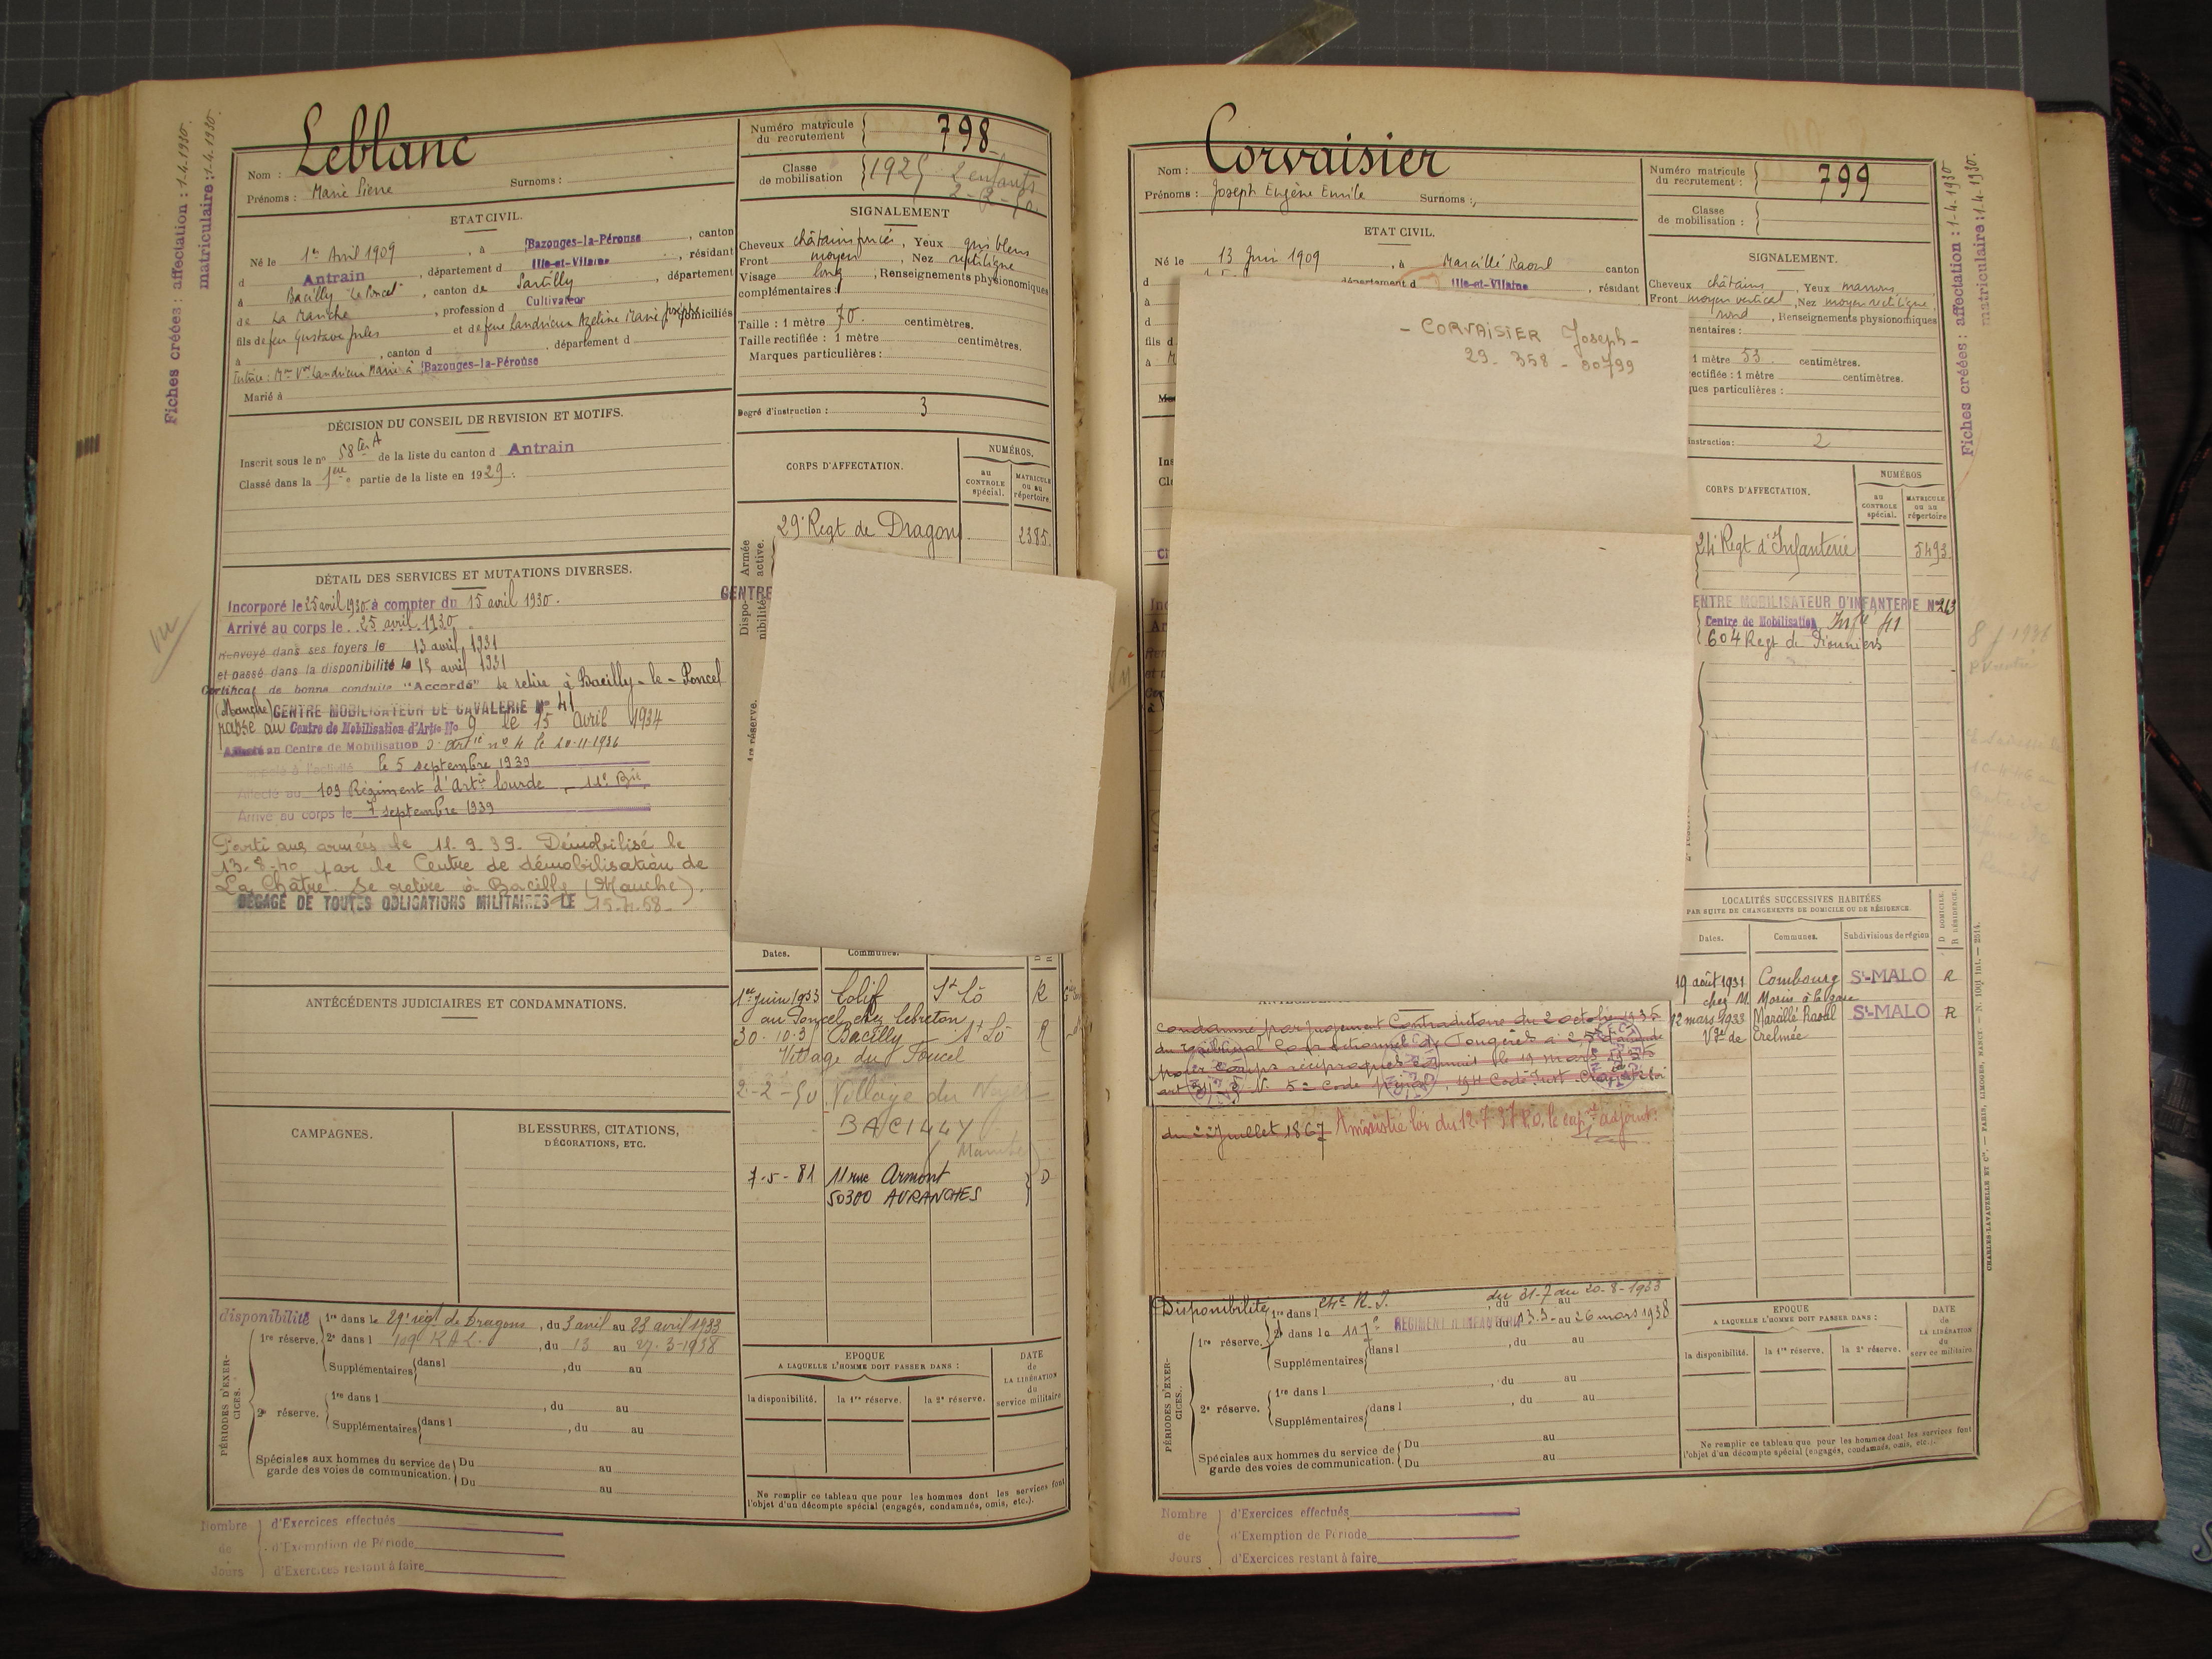 Fiches créées : affectation : 1-4-1930.
matriculaire : 1-4-1930.
Nom : Leblanc
Prénoms : Marie Pierre Surnoms :
Numéro matricule du recrutement 798
Classe de mobilisation 1925 2 enfants
ETAT CIVIL.
Né le 1er Avril 1909, à Bazouges-la-Pérouse, canton
d Antrain, département d Ille-et-Vilaine, résidant
à Bacilly "Le Poncel", canton de Sartilly, département
de La Manche, profession d Cultivateur
fils de feu Gustave Jules et de feue Landrieux Azeline Marie Josèphe domiciliés
à , canton d , département d
Tutrice : Mme Vve Landrieux Marie à Bazouges-la-Pérouse
Marié à
SIGNALEMENT
Cheveux châtains foncés, Yeux gris bleus
Front moyen, Nez rectiligne
Visage long, Renseignements physionomiques
complémentaires :
Taille : 1 mètre 70. centimètres.
Taille rectifiée : 1 mètre centimètres.
Marques particulières :
Degré d'instruction : 3
DÉCISION DU CONSEIL DE REVISION ET MOTIFS.
Inscrit sous le no 58 ter A de la liste du canton d Antrain
Classé dans la 1ère partie de la liste en 1929.
CORPS D'AFFECTATION.
NUMÉROS.
au CONTROLE spécial.
MATRICULE ou au répertoire.
Armée active.
29e Regt de Dragons 2385.
Dispo-nibilité
CENTRE
1re réserve.
DÉTAIL DES SERVICES ET MUTATIONS DIVERSES.
Incorporé le 25 avril 1930 à compter du 15 avril 1930.
Arrivé au corps le 25 avril 1930
Renvoyé dans ses foyers le 13 avril 1931
et passé dans la disponibilité le 15 avril 1931
Certificat de bonne conduite "Accordé" se retire à Bacilly-le-Poncel
(Manche) CENTRE MOBILISATEUR DE CAVALERIE No 41
passé au Centre de Mobilisation d'Artie No 9 le 15 avril 1934
Affecté au Centre de Mobilisation d'Artie no 4 le 20-11-1936
Rappelé à l'activité le 5 septembre 1939
Affecté au 109 Régiment d'Artie lourde - 11e Bie
Arrivé au corps le 7 septembre 1939
Parti aux armées le 11.9.39. Démobilisé le
13-8-40 par le Centre de démobilisation de
La Châtre. Se retire à Bacilly (Manche).
DÉGAGÉ DE TOUTES OBLIGATIONS MILITAIRES LE 15-4-58
ANTÉCÉDENTS JUDICIAIRES ET CONDAMNATIONS.
Dates. Communes.
1er juin 1933 Lolif St Lô R
au Poncel chez Lebreton
30.10.3 Bacilly St Lô R
Village du Poncel
2-2-50 Village du Noyer
BACILLY
(Manche)
7-5-81 11 rue Armont D
50300 AVRANCHES
CAMPAGNES.
BLESSURES, CITATIONS, DÉCORATIONS, ETC.
PÉRIODES D'EXERCICES.
disponibilité 1re dans le 29e régt de Dragons, du 3 avril au 23 avril 1933
1re réserve. 2e dans l 109 R.A.L., du 13 au 27-3-1938
Supplémentaires dans l , du au
2e réserve. 1re dans l , du au
Supplémentaires dans l , du au
Spéciales aux hommes du service de garde des voies de communication. Du au
Du au
EPOQUE
A LAQUELLE L'HOMME DOIT PASSER DANS :
la disponibilité. la 1re réserve. la 2e réserve.
DATE de LA LIBÉRATION du service militaire
Ne remplir ce tableau que pour les hommes dont les services font
l'objet d'un décompte spécial (engagés, condamnés, omis, etc.).
Nombre de Jours
d'Exercices effectués
d'Exemption de Période
d'Exercices restant à faire
Nom : Corvaisier
Prénoms : Joseph Eugène Emile Surnoms :
Numéro matricule du recrutement : 799
Classe de mobilisation :
ETAT CIVIL.
Né le 13 Juin 1909, à Marcillé Raoul canton
d département d Ille-et-Vilaine, résidant
SIGNALEMENT.
Cheveux châtains, Yeux marrons,
Front moyen vertical, Nez moyen rectiligne
rond, Renseignements physionomiques
mentaires :
1 mètre 53 centimètres.
rectifiée : 1 mètre centimètres.
ques particulières :
instruction : 2
- CORVAISIER Joseph -
29 - 358 - 00799
CORPS D'AFFECTATION.
NUMÉROS
au CONTROLE spécial.
MATRICULE ou au répertoire
24e Regt d'Infanterie 5493.
ENTRE MOBILISATEUR D'INFANTERIE No 213
Centre de Mobilisation Infie 41
604 Regt de Pionniers
LOCALITÉS SUCCESSIVES HABITÉES
PAR SUITE DE CHANGEMENTS DE DOMICILE OU DE RÉSIDENCE.
Dates. Communes. Subdivisions de région D DOMICILE. R RÉSIDENCE.
19 août 1931 Combourg St-MALO R
chez M. Morin à la gare
12 mars 1933 Marcillé Raoul St-MALO R
Vge de Erelmée
condamné par jugement Contradictoire du 2 octobre 1935
du tribunal Correctionnel de Fougères à 25f d'amende
pour coups réciproques commis le 19 mars 1935
du 22 Juillet 1867 Amnistié loi du 12.7.37 P.O. le capne adjoint :
PÉRIODES D'EXERCICES.
Disponibilité 1re dans l 24e R.I. du 31-7 au 20-8-1933
1re réserve. 2e dans le 117e RÉGIMENT D'INFANTERIE du 13.3 au 26 mars 1938
Supplémentaires dans l , du au
2e réserve. 1re dans l , du au
Supplémentaires dans l , du au
Spéciales aux hommes du service de garde des voies de communication. Du au
Du au
EPOQUE
A LAQUELLE L'HOMME DOIT PASSER DANS :
la disponibilité. la 1re réserve. la 2e réserve.
DATE de LA LIBÉRATION du service militaire.
Ne remplir ce tableau que pour les hommes dont les services font
l'objet d'un décompte spécial (engagés, condamnés, omis, etc.).
Nombre de Jours
d'Exercices effectués
d'Exemption de Période
d'Exercices restant à faire
Fiches créées : affectation : 1-4-1930
matriculaire : 1-4-1930.
CHARLES-LAVAUZELLE ET Cie. — PARIS, LIMOGES, NANCY. — N. 1001 Int. — 2514.